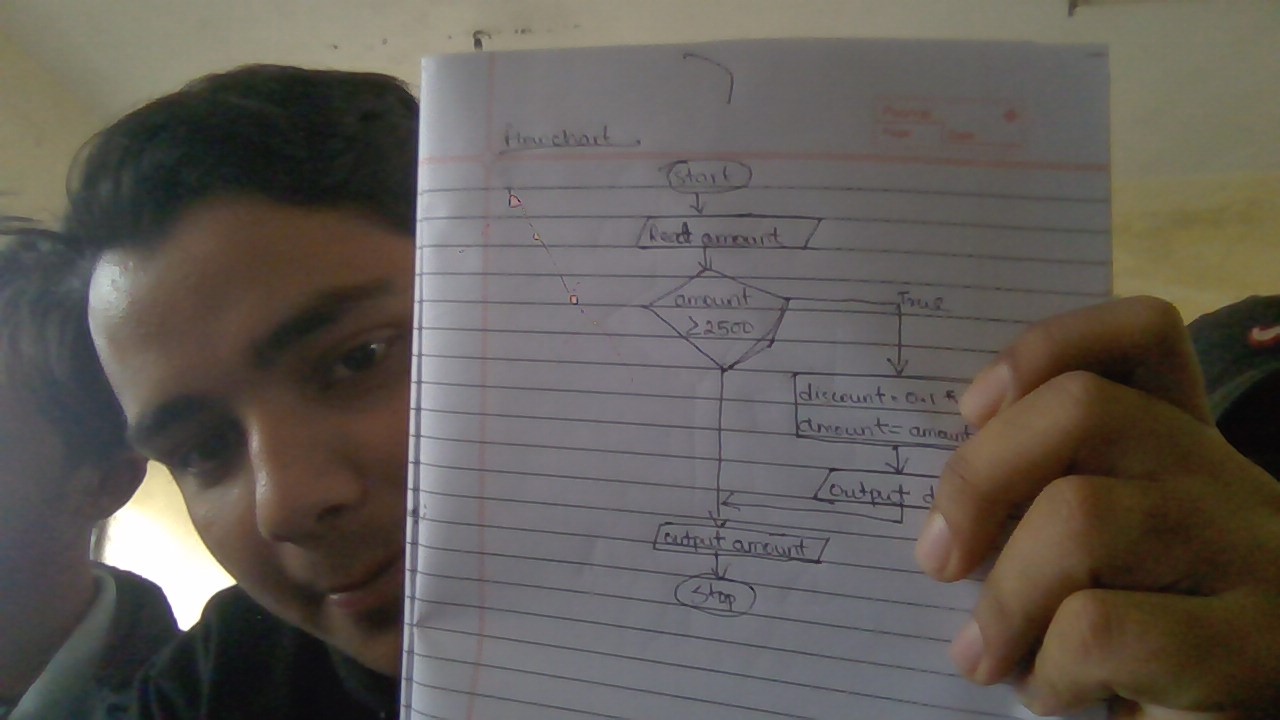 Flowchart
Start
Read amount
amount
≥2500
True
discount = 0.1 *
amount = amount
output d
output amount
Stop